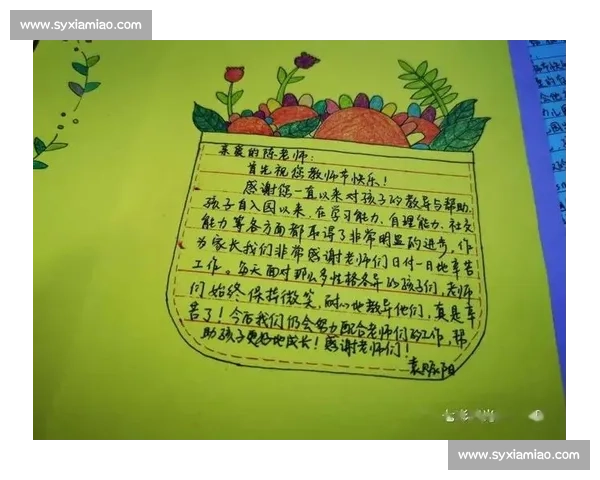 www.syxiamiao.com
亲爱的陈老师：
首先祝您教师节快乐！
感谢您一直以来对孩子的教导与帮助，
孩子自入园以来，在学习能力、自理能力、社交
能力等各方面都取得了非常明显的进步，作
为家长我们非常感谢老师们日付一日地辛苦
工作。每天面对那么多性格各异的孩子们，老师
们始终保持微笑，耐心地教导他们，真是辛
苦了！今后我们仍会努力配合老师们的工作，帮
助孩子更好地成长！感谢老师们！
袁 阳
www.syxiamiao.com